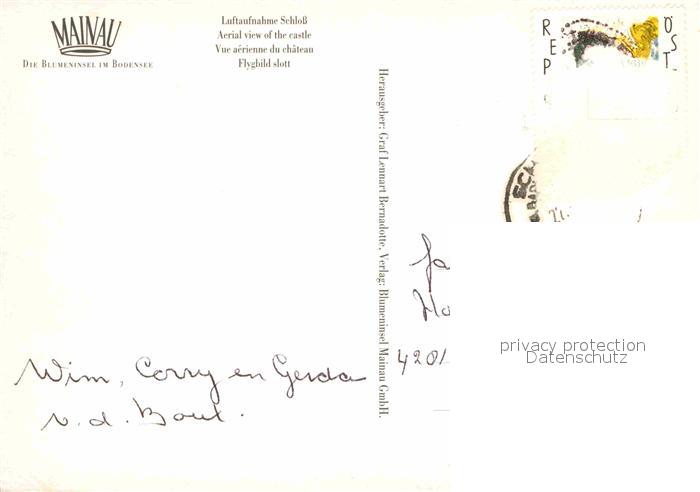 MAINAU
DIE BLUMENINSEL IM BODENSEE
Luftaufnahme Schloß
Aerial view of the castle
Vue aérienne du château
Flygbild slott
REP
ÖST
Herausgeber: Graf Lennart Bernadotte, Verlag: Blumeninsel Mainau GmbH.
Ja
Ho
4201
privacy protection
Datenschutz
Wim, Corry en Gerda
v.d. Bout.